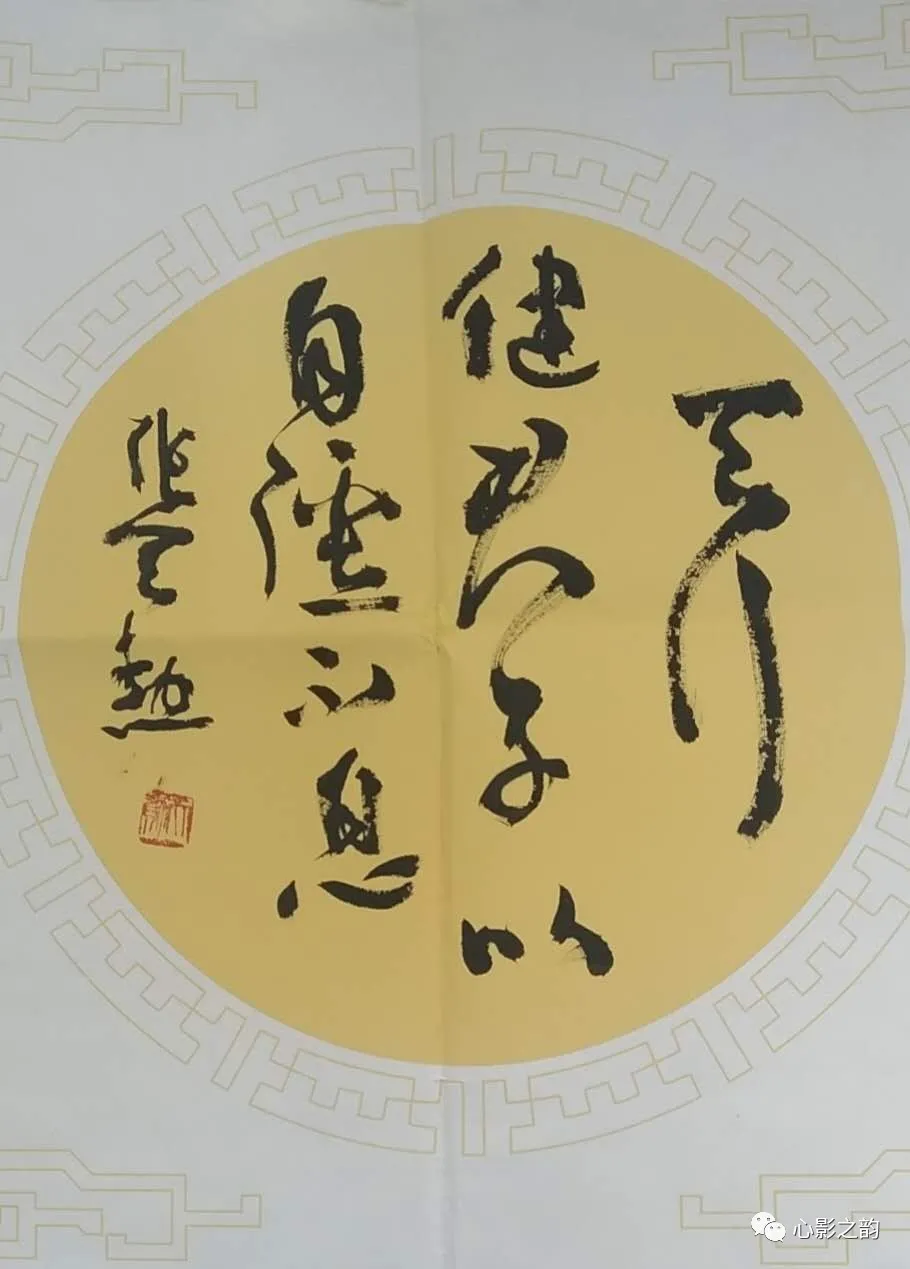 天行
健君子以
自强不息
张
心影之韵